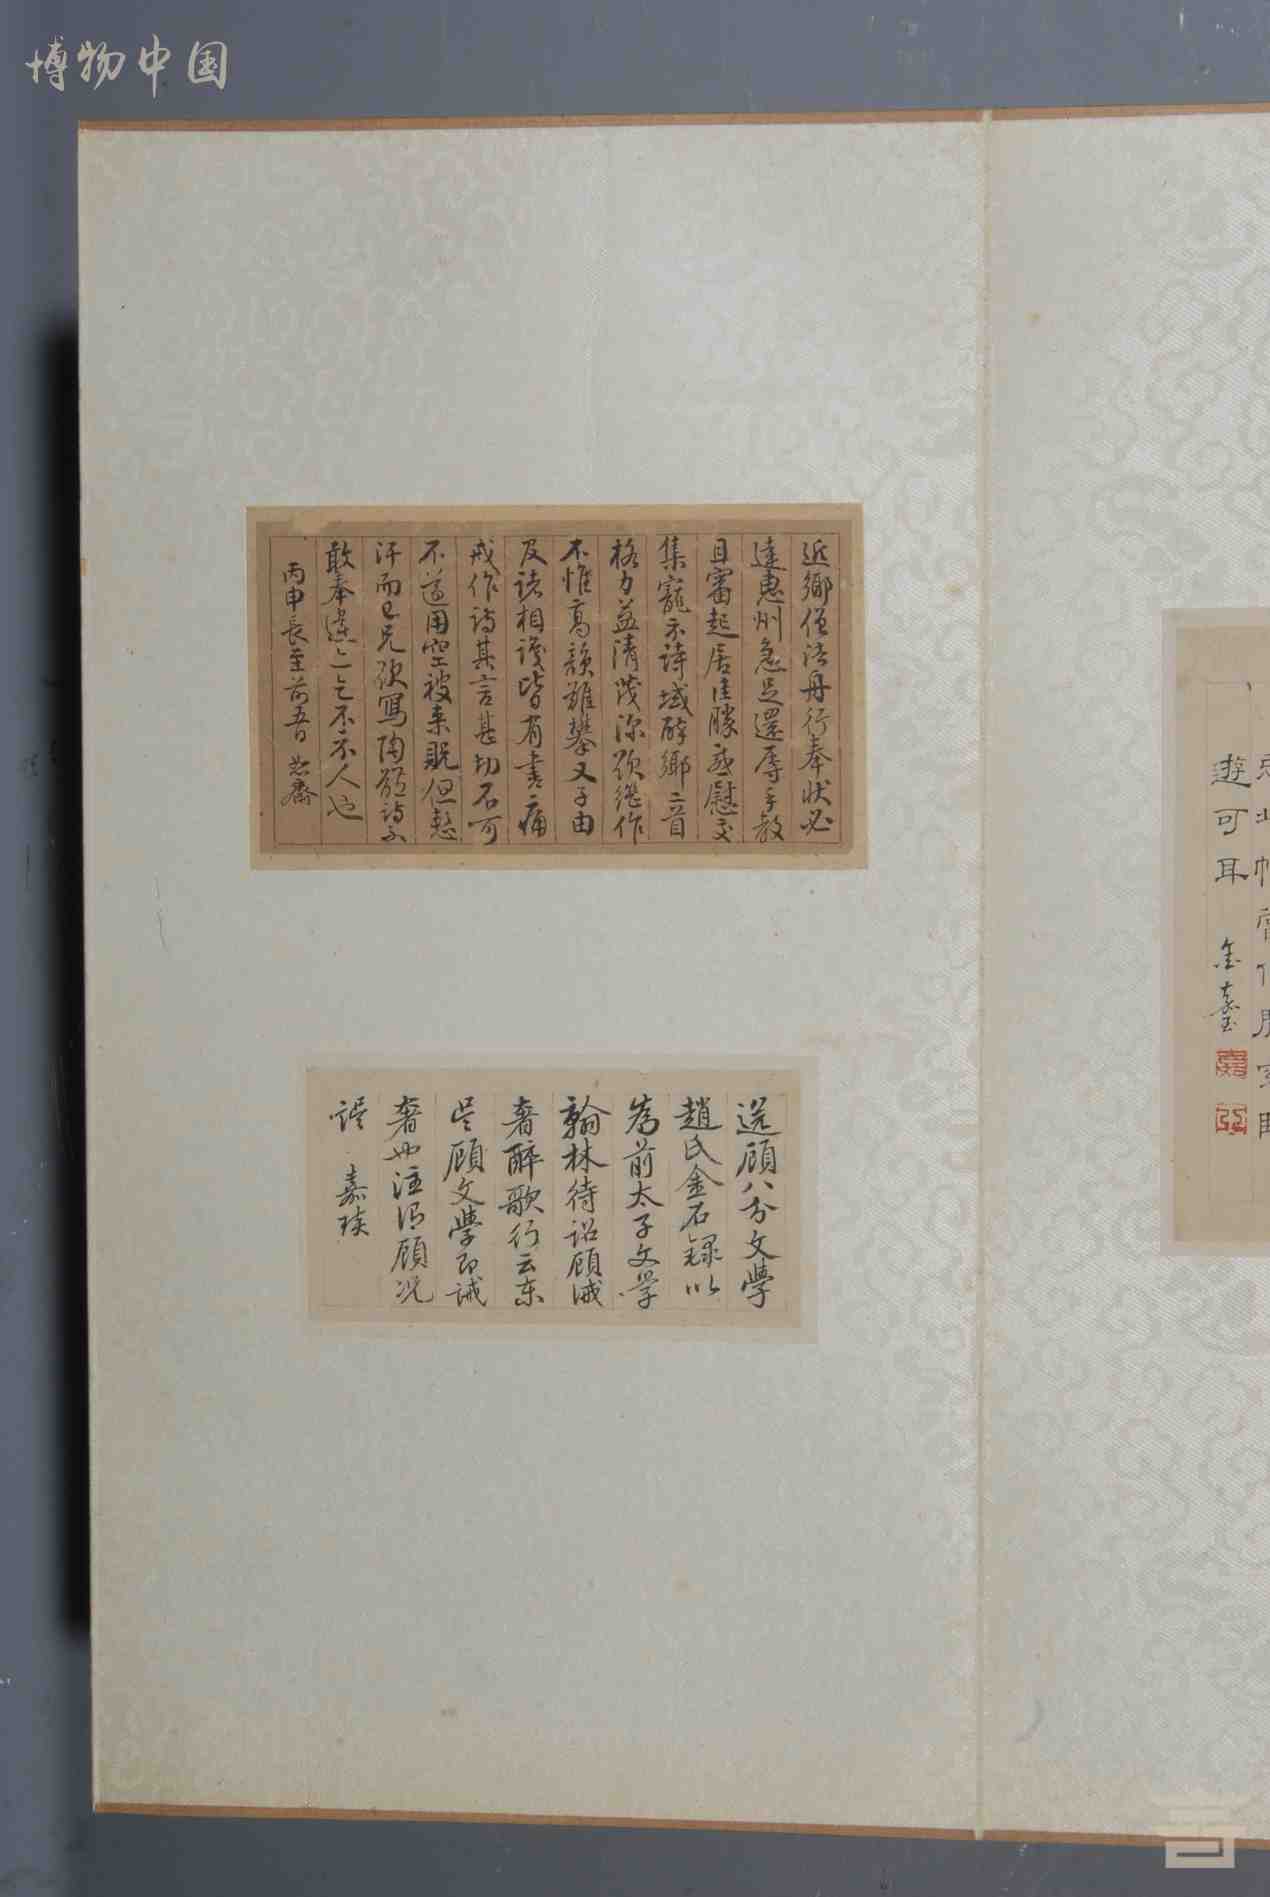 博物中国
近鄉僧法舟行奉狀必
達惠州急足還辱手教
且審起居佳勝感慰交
集寵示詩域醉鄉二首
格力益清茂深欲繼作
不惟高韻難攀又子由
及諸相識皆有書痛
戒作詩其言甚切不可
不遵用空被來貺但慙
汗而已兄欲寫陶體詩不
敢奉違
丙申長至前五日
送顧八分文學
趙氏金石録以
為前太子文學
翰林待詔顧誡
奢醉歌行云東
吳顧文學即誡
奢也注謂顧況
誤 嘉琰
遊可耳